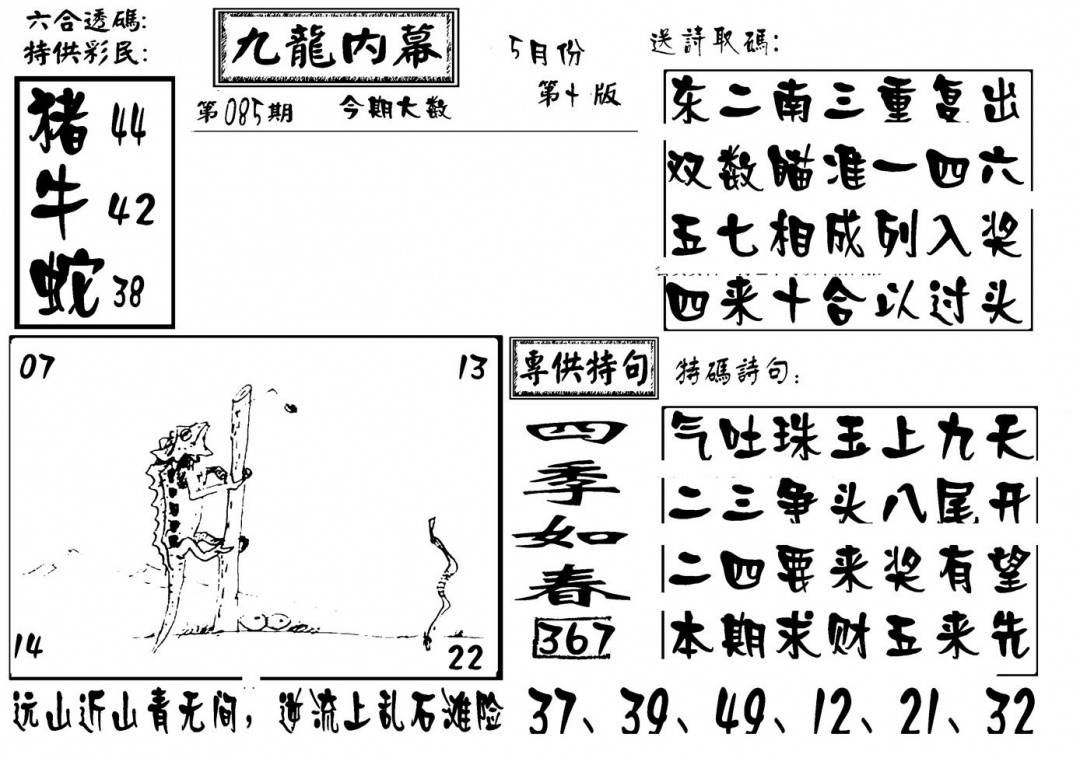 六合透碼:
特供彩民:
猪 44
牛 42
蛇 38
九龍内幕
5月份
第十版
第085期 今期大数
送詩取碼:
东二南三重复出
双数瞄准一四六
五七相成列入奖
四来十合以过头
07 13
14 22
專供特句
四季如春
367
特碼詩句:
气吐珠玉上九天
二三争头八尾开
二四要来奖有望
本期求财五来先
远山近山青无间,逆流上乱石滩险
37、39、49、12、21、32